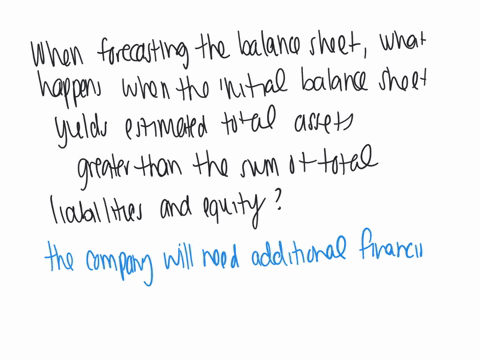 When forecasting the balance sheet, what
happens when the initial balance sheet
yields estimated total assets
greater than the sum of total
liabilities and equity?
the company will need additional financi